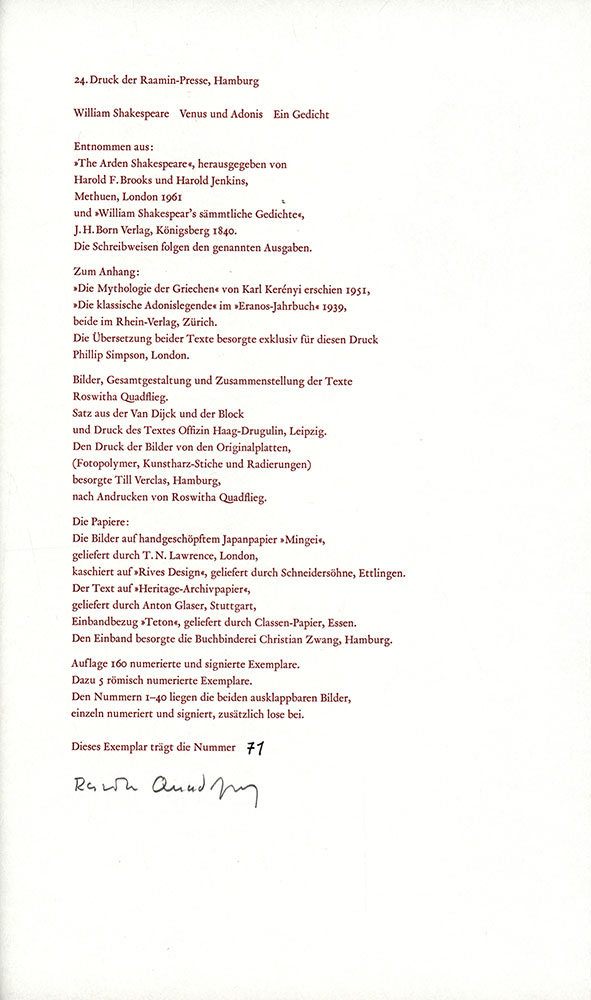 24. Druck der Raamin-Presse, Hamburg
William Shakespeare Venus und Adonis Ein Gedicht
Entnommen aus:
»The Arden Shakespeare«, herausgegeben von
Harold F. Brooks und Harold Jenkins,
Methuen, London 1961
und »William Shakespear's sämmtliche Gedichte«,
J. H. Born Verlag, Königsberg 1840.
Die Schreibweisen folgen den genannten Ausgaben.
Zum Anhang:
»Die Mythologie der Griechen« von Karl Kerényi erschien 1951,
»Die klassische Adonislegende« im »Eranos-Jahrbuch« 1939,
beide im Rhein-Verlag, Zürich.
Die Übersetzung beider Texte besorgte exklusiv für diesen Druck
Phillip Simpson, London.
Bilder, Gesamtgestaltung und Zusammenstellung der Texte
Roswitha Quadflieg.
Satz aus der Van Dijck und der Block
und Druck des Textes Offizin Haag-Drugulin, Leipzig.
Den Druck der Bilder von den Originalplatten,
(Fotopolymer, Kunstharz-Stiche und Radierungen)
besorgte Till Verclas, Hamburg,
nach Andrucken von Roswitha Quadflieg.
Die Papiere:
Die Bilder auf handgeschöpftem Japanpapier »Mingei«,
geliefert durch T. N. Lawrence, London,
kaschiert auf »Rives Design«, geliefert durch Schneidersöhne, Ettlingen.
Der Text auf »Heritage-Archivpapier«,
geliefert durch Anton Glaser, Stuttgart,
Einbandbezug »Teton«, geliefert durch Classen-Papier, Essen.
Den Einband besorgte die Buchbinderei Christian Zwang, Hamburg.
Auflage 160 numerierte und signierte Exemplare.
Dazu 5 römisch numerierte Exemplare.
Den Nummern 1–40 liegen die beiden ausklappbaren Bilder,
einzeln numeriert und signiert, zusätzlich lose bei.
Dieses Exemplar trägt die Nummer 71